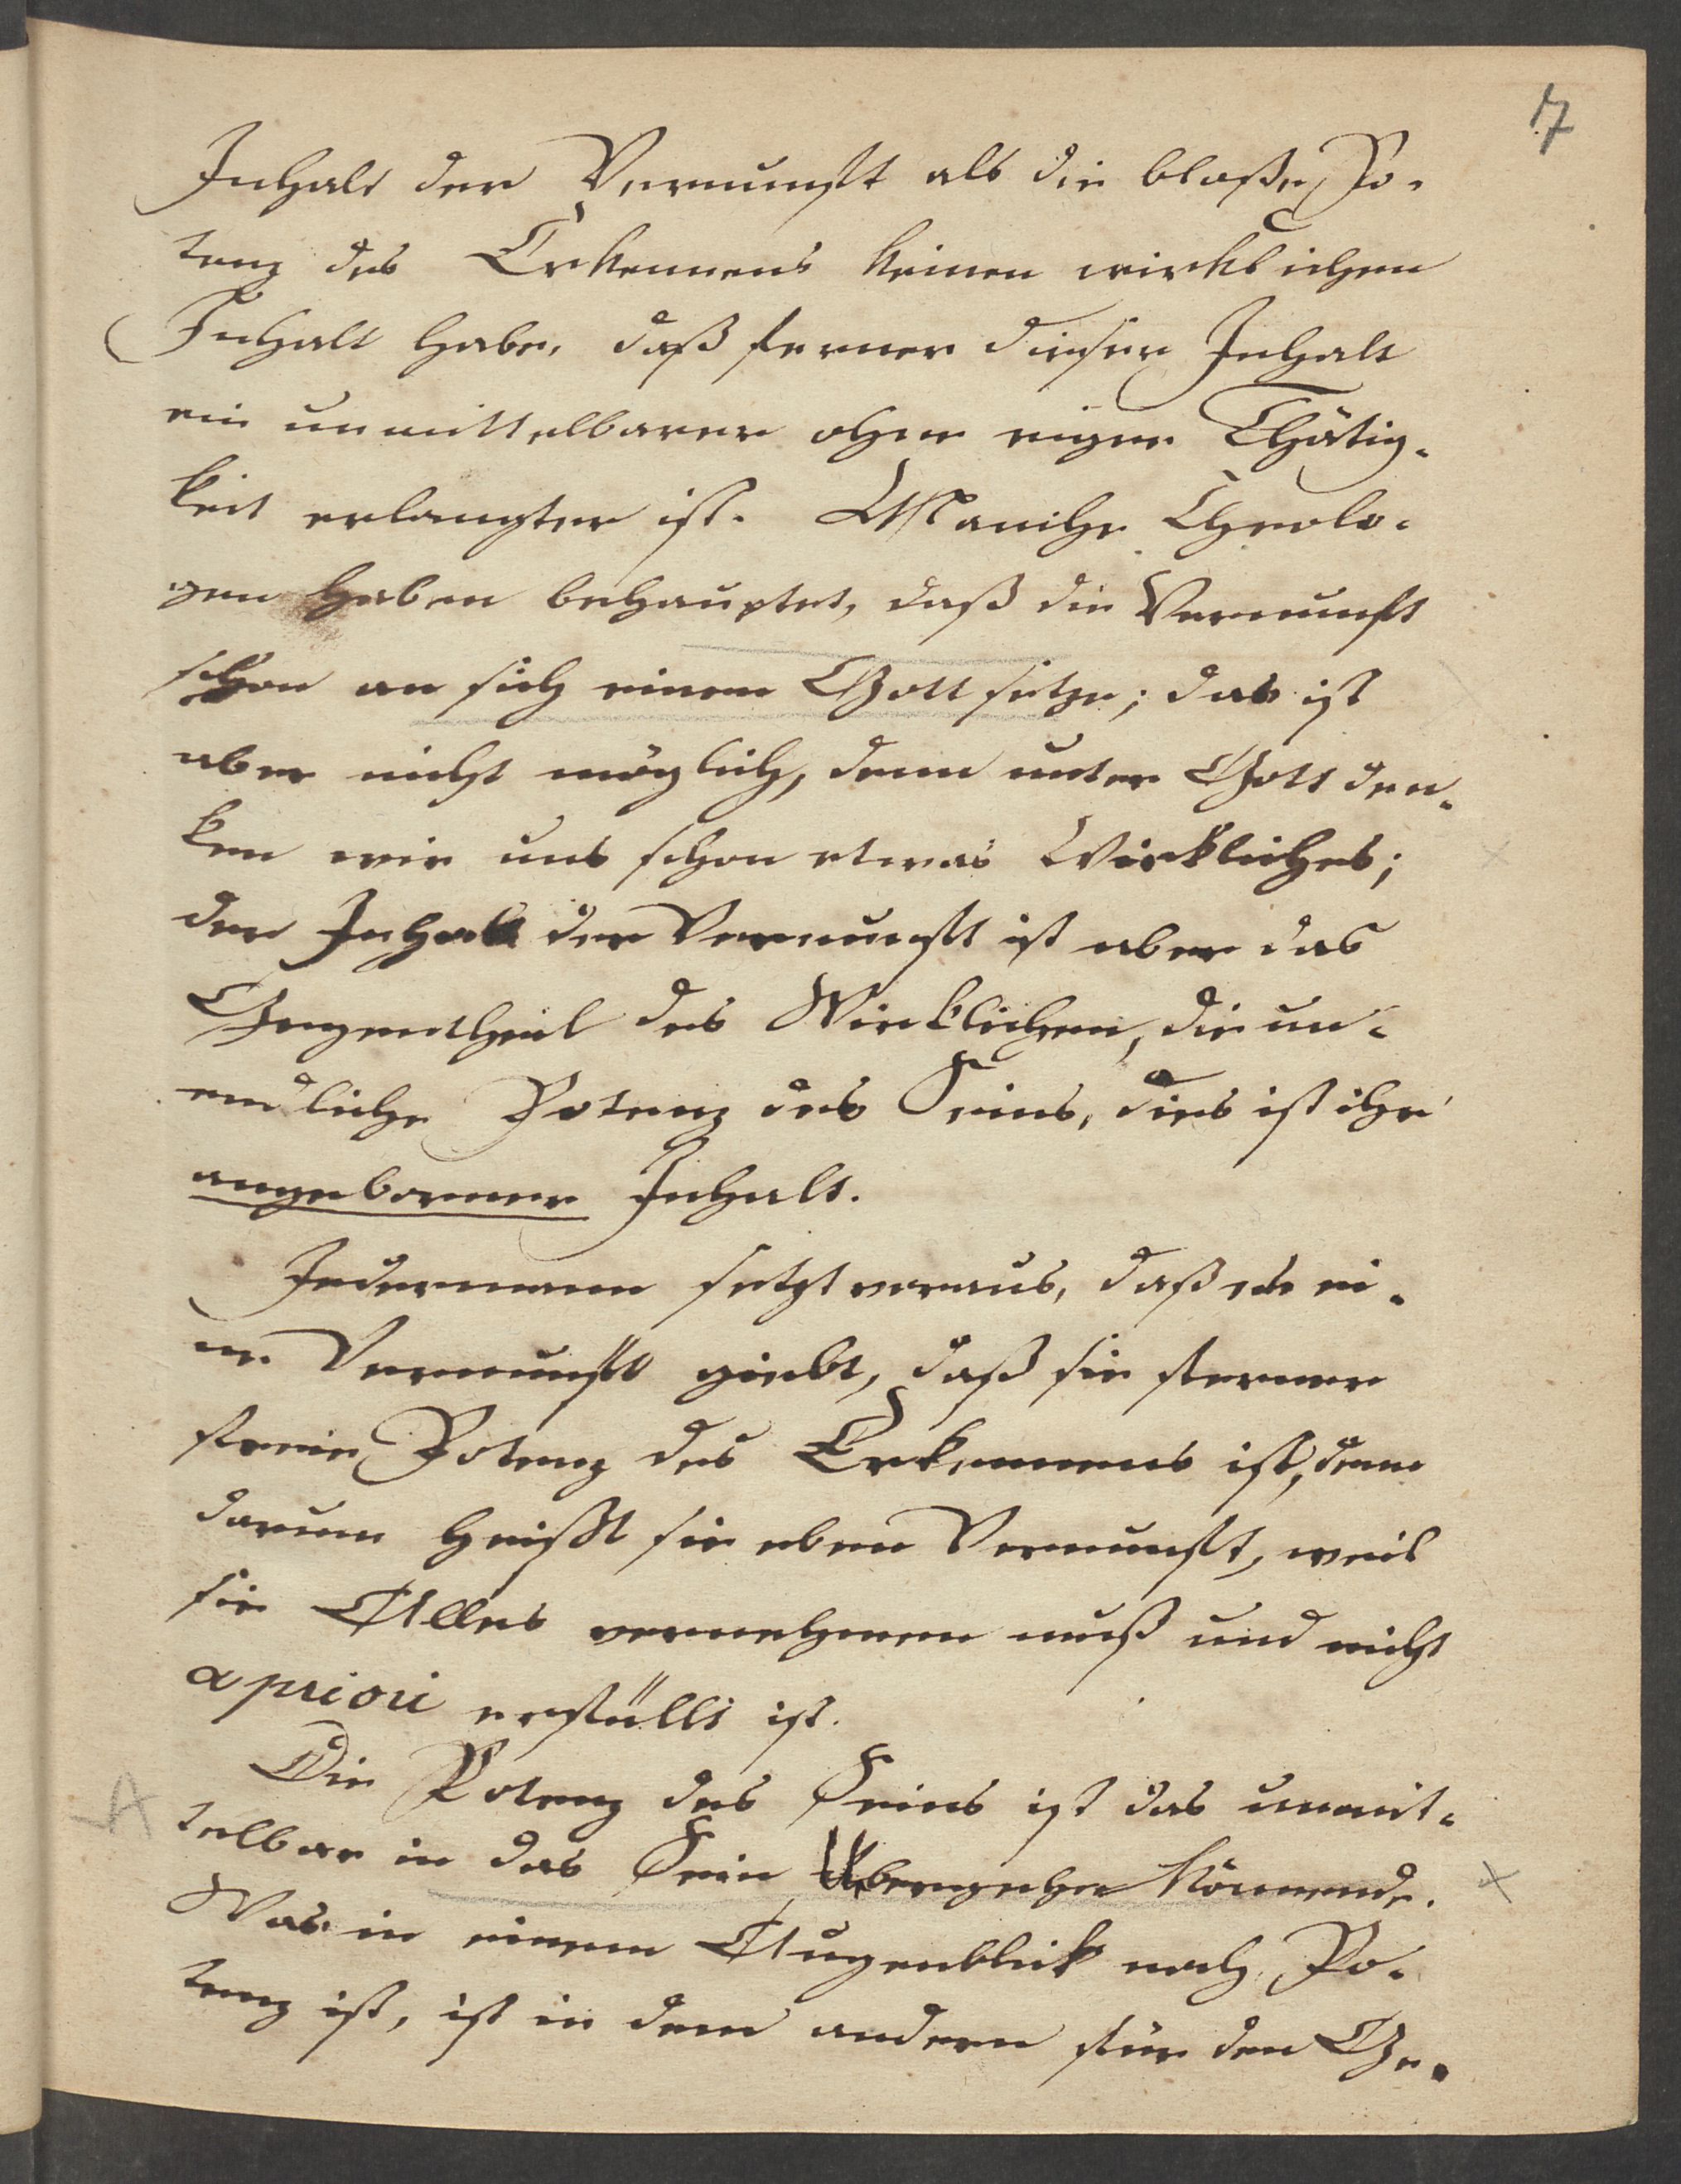 17
Inhalt der Vernunft als die bloße Po-
tenz des Erkennens keinen wirklichen
Inhalt habe, daß ferner dieser Inhalt
ein unmittelbarer ohne eigne Thätig-
keit erlangter ist. Manche Theolo-
gen haben behauptet, daß die Vernunft
schon an sich einen Gott setze; das ist
aber nicht möglich, denn unter Gott den-
ken wir uns schon etwas Wirkliches;
der Inhalt der Vernunft ist aber das
Gegentheil des Wirklichen, die un-
endliche Potenz des Seins, dies ist ihr
angeborener Inhalt.
Jedermann setzt voraus, daß es ei-
ne Vernunft giebt, daß sie ferner
freie Potenz des Erkennens ist, denn
darum heißt sie eben Vernunft, weil
sie Alles vernehmen muß und nicht
a priori erfüllt ist.
A
Die Potenz des Seins ist das unmit-
telbar in das Sein Übergehen Könnende.
Was in einem Augenblick noch Po-
tenz ist, ist in dem andern für den Ge-